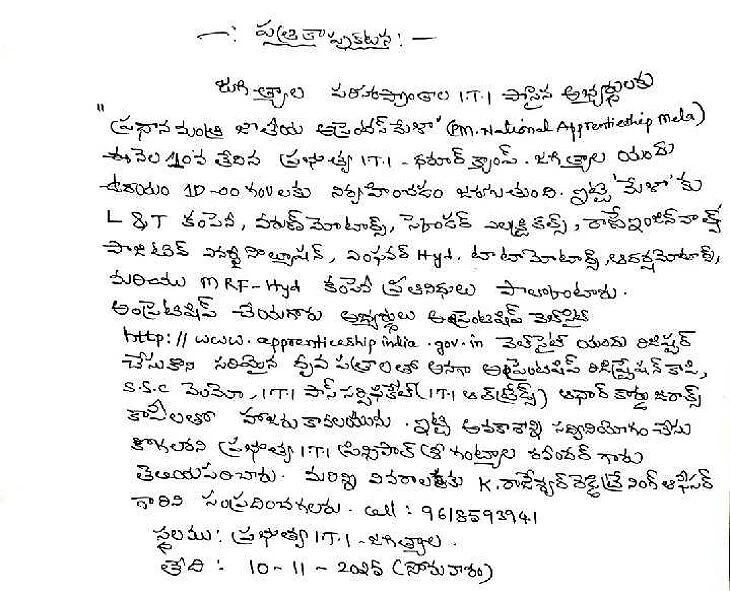 —: పత్రికా ప్రకటన : —
జగిత్యాల పరిసరప్రాంతాల I.T.I పాసైన అభ్యర్థులకు
"ప్రధాన మంత్రి జాతీయ అప్రెంటిస్ మేళా" (PM. National Apprenticeship Mela)
ఈ నెల 10వ తేదిన ప్రభుత్వ I.T.I - ధరూర్ క్యాంప్. జగిత్యాల యందు
ఉదయం 10-00 గం॥లకు నిర్వహించడం జరుగుతుంది. ఇట్టి 'మేళా' కు
L & T కంపెనీ, వరుణ్ మోటార్స్, ఎలక్ట్రికల్స్,
Hyd. టాటా మోటార్స్, ఆదర్శ మోటార్స్,
మరియు MRF-Hyd కంపెనీ ప్రతినిధులు పాల్గొంటారు.
అప్రెంటిషిప్ చేయగోరు అభ్యర్థులు అప్రెంటిషిప్ వెబ్‌సైట్
http://www.apprenticeship india.gov.in వెబ్‌సైట్ యందు రిజిష్టర్
చేసుకొని సరియైన ధృవ పత్రాలతో అనగా అప్రెంటిషిప్ రిజిస్ట్రేషన్ కాపి,
S.S.C మెమో, I.T.I పాస్ సర్టిఫికేట్ (I.T.I ఆల్ ట్రేడ్స్) ఆధార్ కార్డు జిరాక్స్
కాపీలతో హాజరు కావలయును. ఇట్టి అవకాశాన్ని సద్వినియోగం చేసు
కోగలరని ప్రభుత్వ I.T.I ప్రిన్సిపాల్ శ్రీ రవీందర్ గారు
తెలియపరిచారు. మరిన్ని వివరాలకు K. రాజేశ్వర్ రెడ్డి ట్రైనింగ్ ఆఫీసర్
గారిని సంప్రదించగలరు. Call : 9618593941
స్థలము : ప్రభుత్వ I.T.I - జగిత్యాల.
తేది : 10-11-2025 (సోమవారం)